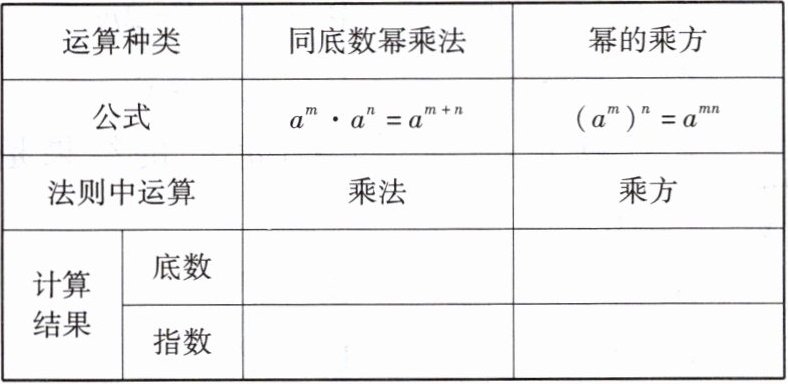 运算种类 同底数幂乘法 幂的乘方
公式 aᵐ · aⁿ = aᵐ⁺ⁿ (aᵐ)ⁿ = aᵐⁿ
法则中运算 乘法 乘方
计算
结果
底数
指数